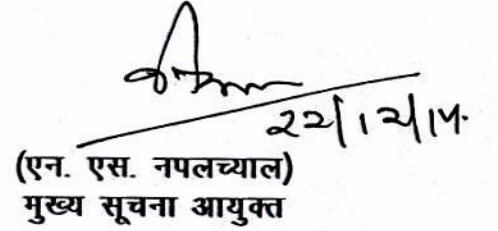 22/12/14.
(एन. एस. नपलच्याल)
मुख्य सूचना आयुक्त